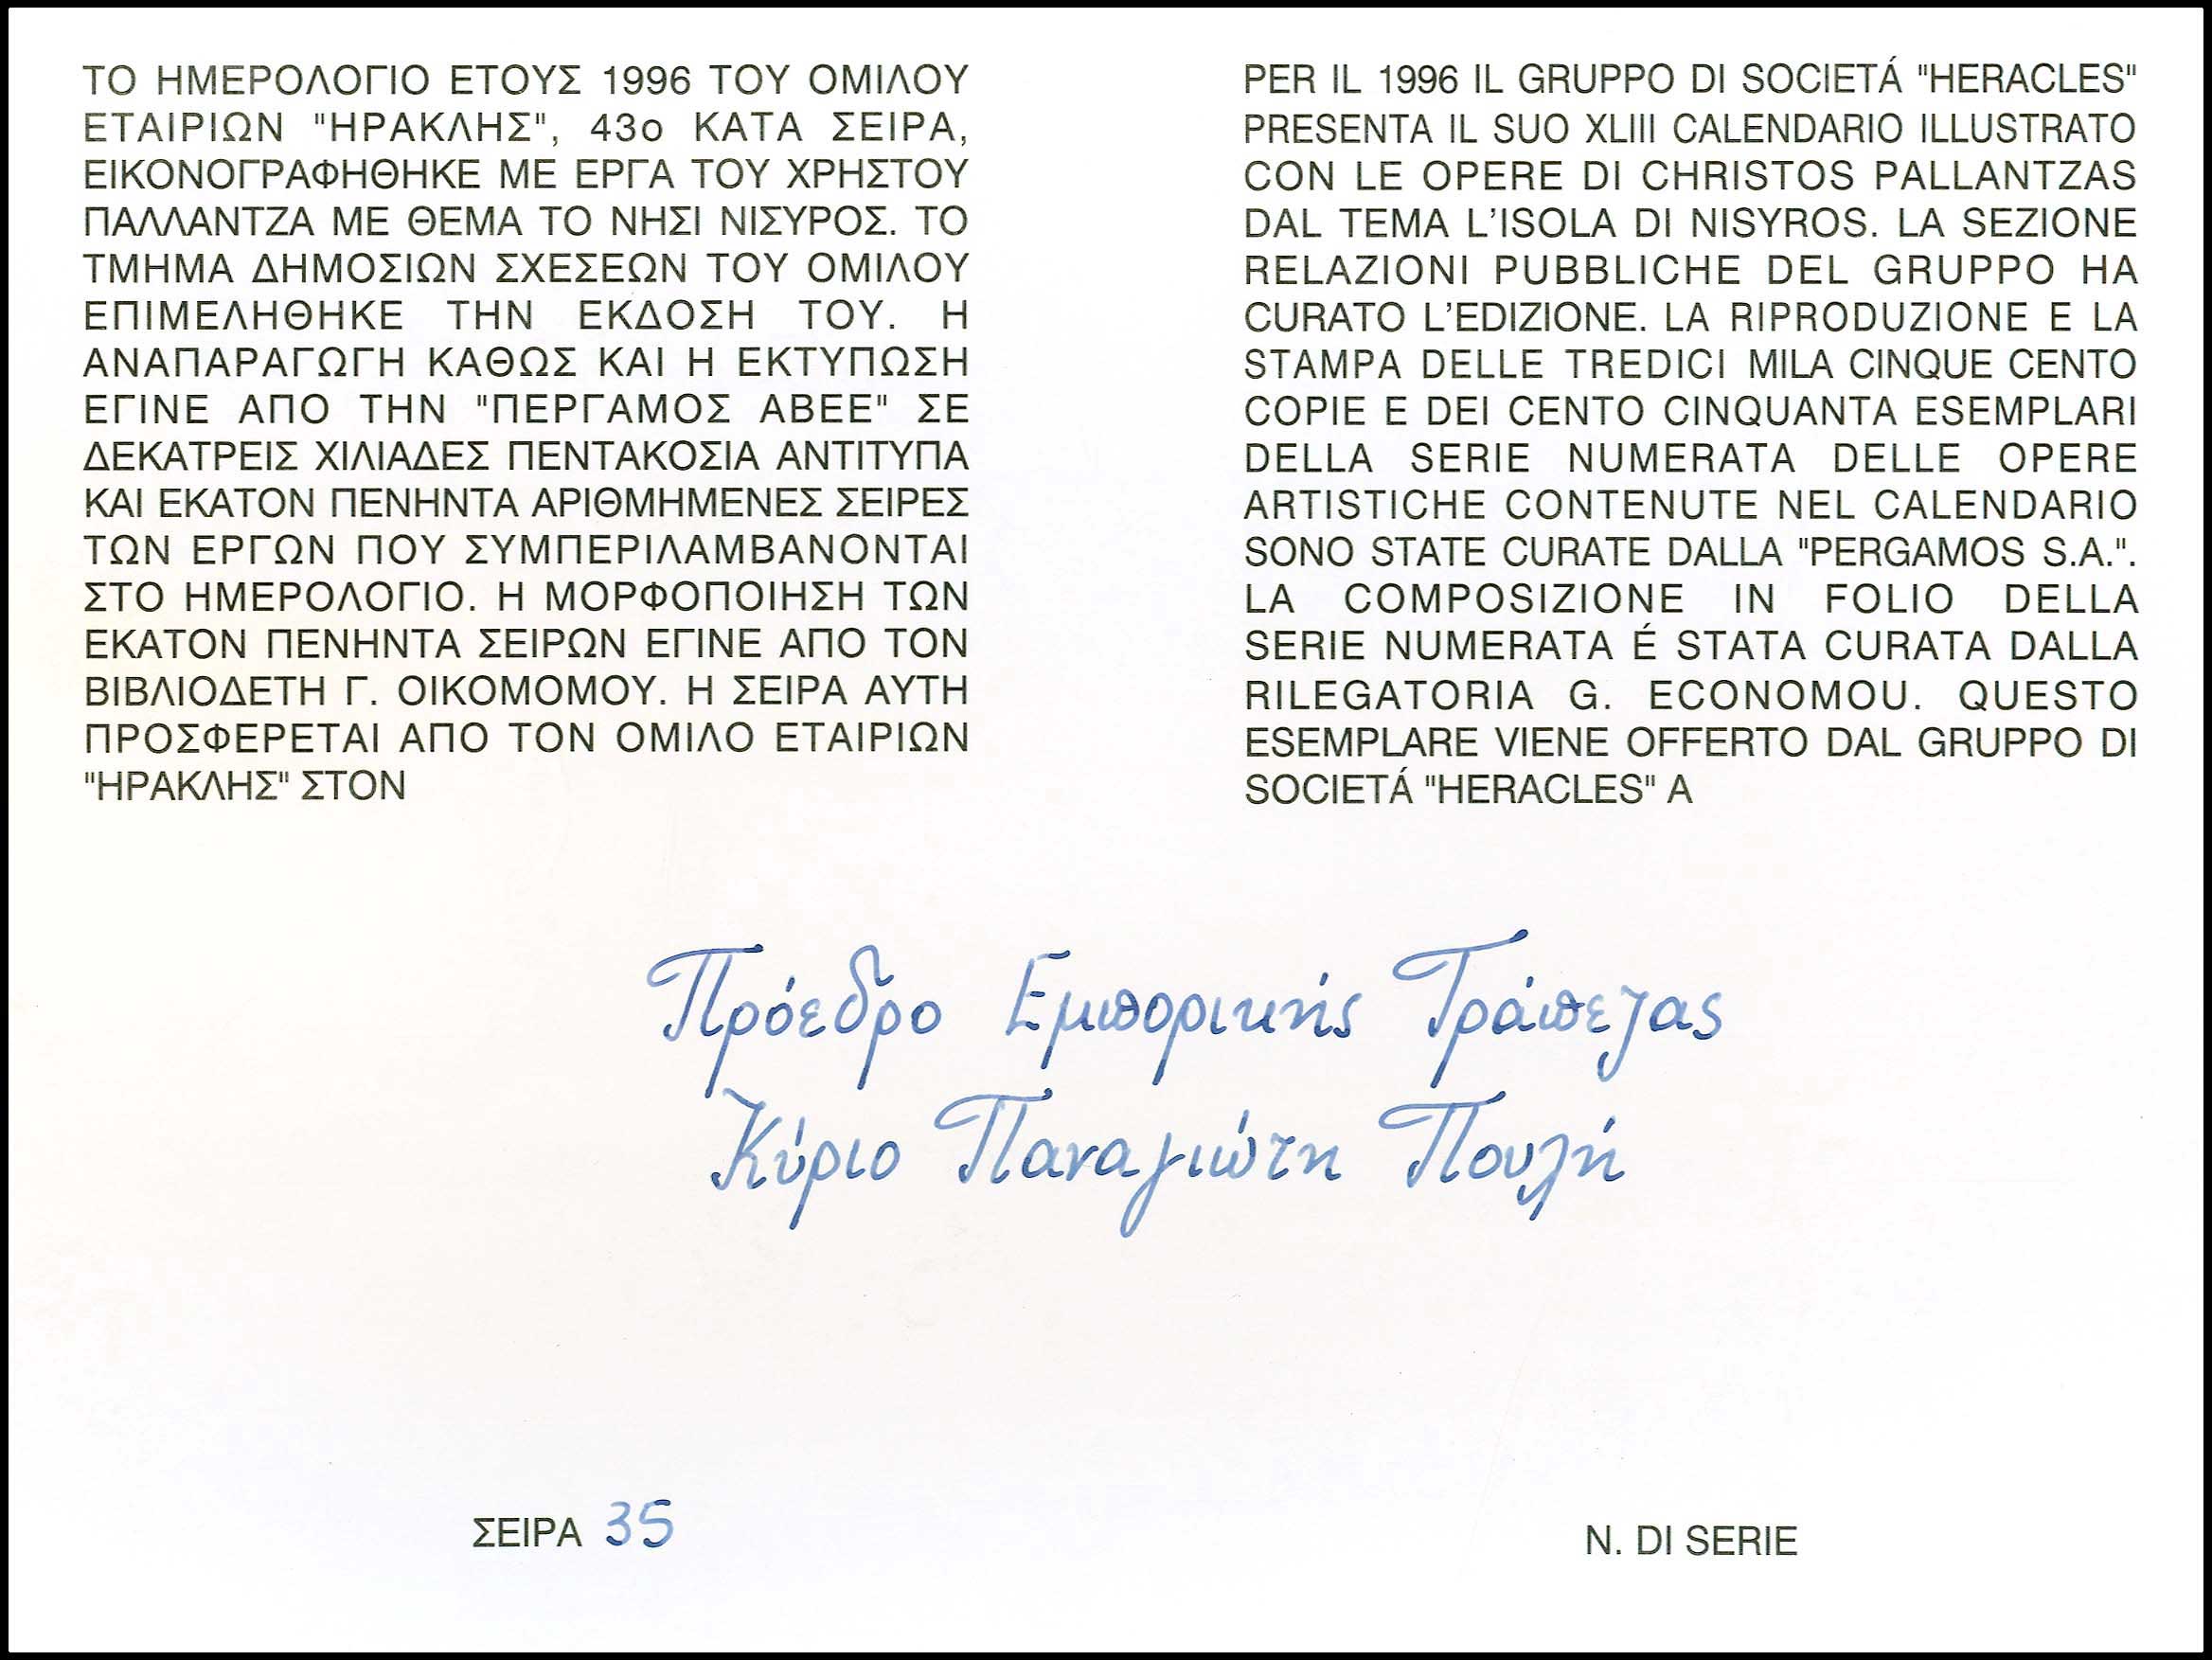 ΤΟ ΗΜΕΡΟΛΟΓΙΟ ΕΤΟΥΣ 1996 ΤΟΥ ΟΜΙΛΟΥ
ΕΤΑΙΡΙΩΝ "ΗΡΑΚΛΗΣ", 43ο ΚΑΤΑ ΣΕΙΡΑ,
ΕΙΚΟΝΟΓΡΑΦΗΘΗΚΕ ΜΕ ΕΡΓΑ ΤΟΥ ΧΡΗΣΤΟΥ
ΠΑΛΛΑΝΤΖΑ ΜΕ ΘΕΜΑ ΤΟ ΝΗΣΙ ΝΙΣΥΡΟΣ. ΤΟ
ΤΜΗΜΑ ΔΗΜΟΣΙΩΝ ΣΧΕΣΕΩΝ ΤΟΥ ΟΜΙΛΟΥ
ΕΠΙΜΕΛΗΘΗΚΕ ΤΗΝ ΕΚΔΟΣΗ ΤΟΥ. Η
ΑΝΑΠΑΡΑΓΩΓΗ ΚΑΘΩΣ ΚΑΙ Η ΕΚΤΥΠΩΣΗ
ΕΓΙΝΕ ΑΠΟ ΤΗΝ "ΠΕΡΓΑΜΟΣ ΑΒΕΕ" ΣΕ
ΔΕΚΑΤΡΕΙΣ ΧΙΛΙΑΔΕΣ ΠΕΝΤΑΚΟΣΙΑ ΑΝΤΙΤΥΠΑ
ΚΑΙ ΕΚΑΤΟΝ ΠΕΝΗΝΤΑ ΑΡΙΘΜΗΜΕΝΕΣ ΣΕΙΡΕΣ
ΤΩΝ ΕΡΓΩΝ ΠΟΥ ΣΥΜΠΕΡΙΛΑΜΒΑΝΟΝΤΑΙ
ΣΤΟ ΗΜΕΡΟΛΟΓΙΟ. Η ΜΟΡΦΟΠΟΙΗΣΗ ΤΩΝ
ΕΚΑΤΟΝ ΠΕΝΗΝΤΑ ΣΕΙΡΩΝ ΕΓΙΝΕ ΑΠΟ ΤΟΝ
ΒΙΒΛΙΟΔΕΤΗ Γ. ΟΙΚΟΜΟΜΟΥ. Η ΣΕΙΡΑ ΑΥΤΗ
ΠΡΟΣΦΕΡΕΤΑΙ ΑΠΟ ΤΟΝ ΟΜΙΛΟ ΕΤΑΙΡΙΩΝ
"ΗΡΑΚΛΗΣ" ΣΤΟΝ
PER IL 1996 IL GRUPPO DI SOCIETÁ "HERACLES"
PRESENTA IL SUO XLIII CALENDARIO ILLUSTRATO
CON LE OPERE DI CHRISTOS PALLANTZAS
DAL TEMA L'ISOLA DI NISYROS. LA SEZIONE
RELAZIONI PUBBLICHE DEL GRUPPO HA
CURATO L'EDIZIONE. LA RIPRODUZIONE E LA
STAMPA DELLE TREDICI MILA CINQUE CENTO
COPIE E DEI CENTO CINQUANTA ESEMPLARI
DELLA SERIE NUMERATA DELLE OPERE
ARTISTICHE CONTENUTE NEL CALENDARIO
SONO STATE CURATE DALLA "PERGAMOS S.A.".
LA COMPOSIZIONE IN FOLIO DELLA
SERIE NUMERATA É STATA CURATA DALLA
RILEGATORIA G. ECONOMOU. QUESTO
ESEMPLARE VIENE OFFERTO DAL GRUPPO DI
SOCIETÁ "HERACLES" A
Πρόεδρο Εμπορικής Τράπεζας
Κύριο Παναγιώτη Πουλή
ΣΕΙΡΑ 35
N. DI SERIE